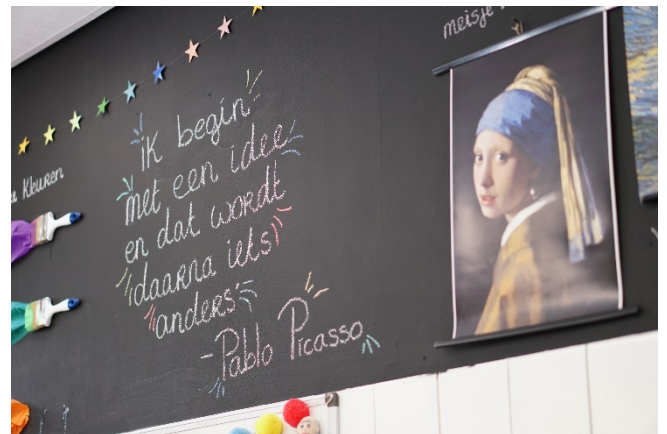 meisje
Kleuren
ik begin
met een idee
en dat wordt
daarna iets
anders
-Pablo Picasso